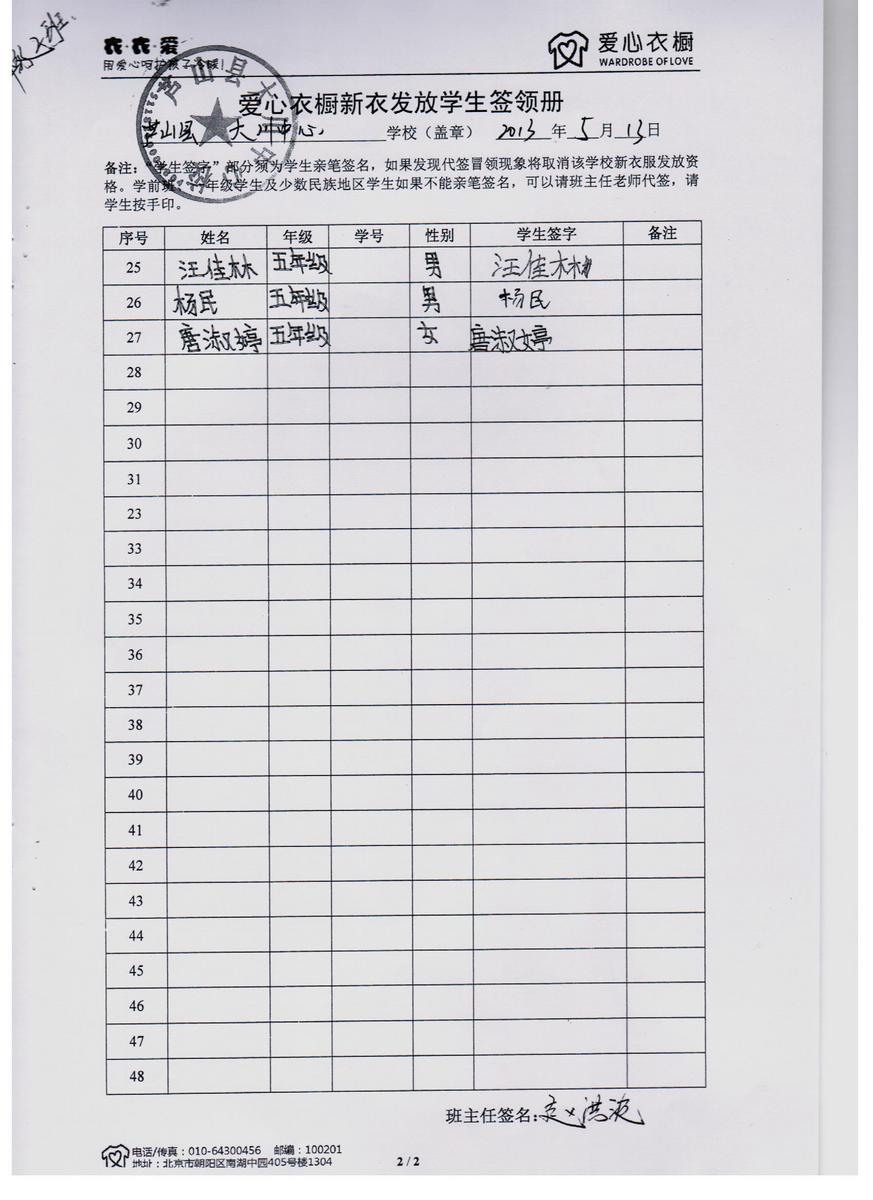 衣·衣·爱
用爱心呵护孩子冷暖!
爱心衣橱
WARDROBE OF LOVE
爱心衣橱新衣发放学生签领册
芦山县 大川中心 学校（盖章） 2013 年 5 月 13 日
备注：“学生签字”部分须为学生亲笔签名，如果发现代签冒领现象将取消该学校新衣服发放资
格。学前班、一年级学生及少数民族地区学生如果不能亲笔签名，可以请班主任老师代签，请
学生按手印。
序号 姓名 年级 学号 性别 学生签字 备注
25 汪佳林 五年级 男 汪佳林
26 杨民 五年级 男 杨民
27 唐淑婷 五年级 女 唐淑婷
28
29
30
31
23
33
34
35
36
37
38
39
40
41
42
43
44
45
46
47
48
班主任签名:
电话/传真：010-64300456 邮编：100201
地址：北京市朝阳区南湖中园405号楼1304
2 / 2